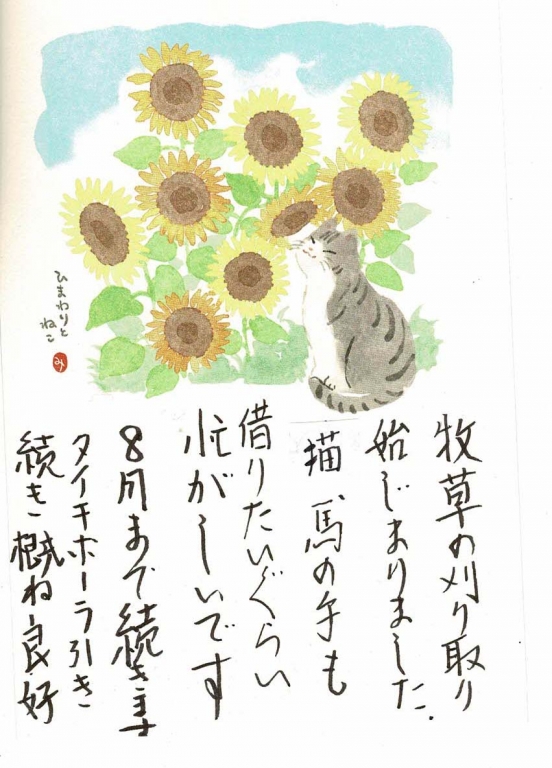 ひまわりと
ねこ
み
牧草の刈り取り
始じまりました.
猫 馬の手も
借りたいぐらい
忙がしいです
8月まで続きます
タイチホーラ引き
続き概ね良好